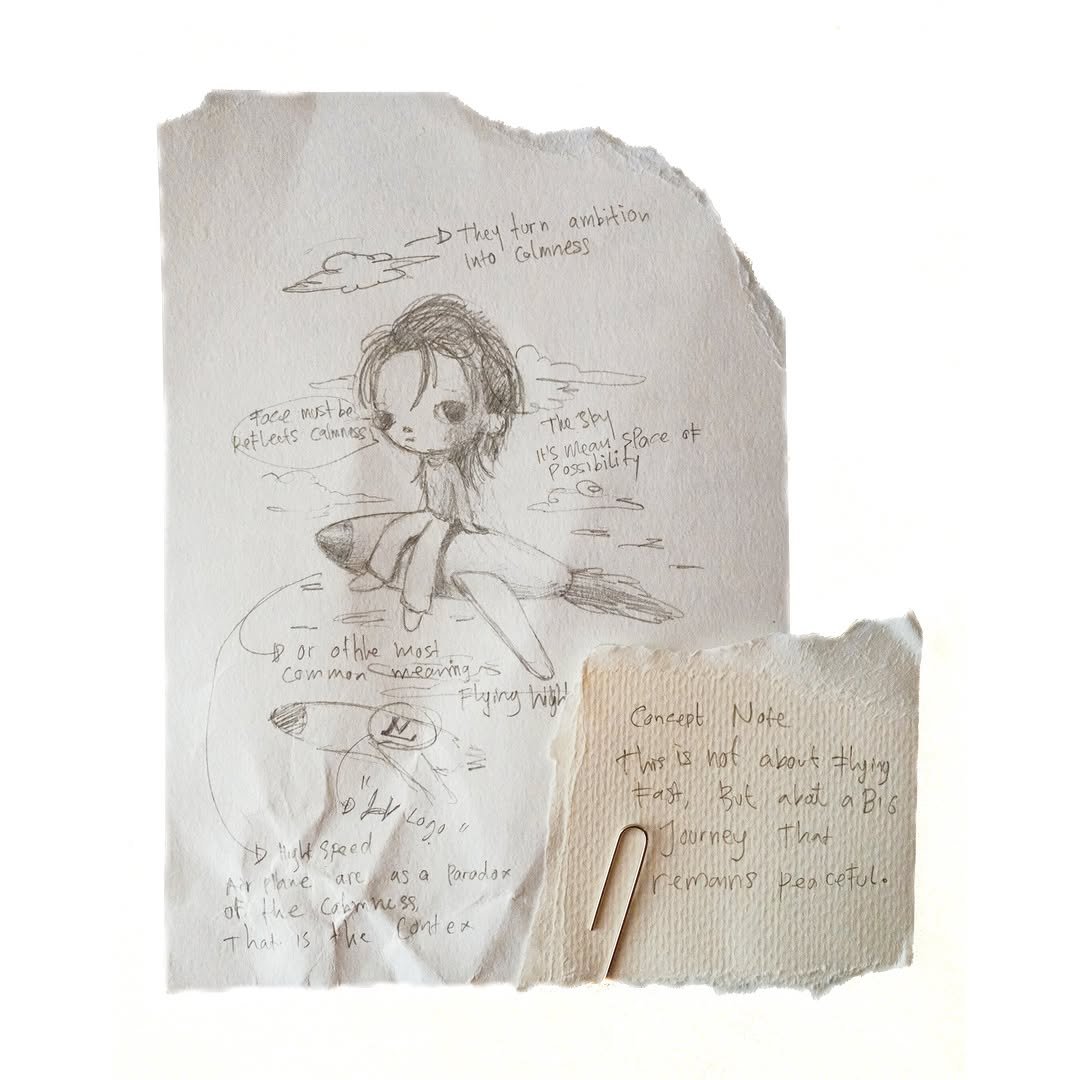 They turn ambition
into calmness
Face must be
Reflects calmness
The sky
It's mean space of
Possibility
or othhe most
common meaning
Flying high
"LV Logo"
Hight speed
Air plane are as a Paradox
of the Calmness,
That is the Contex
Concept Note
This is not about Flying
Fast, But about a BIG
Journey That
remains peaceful.